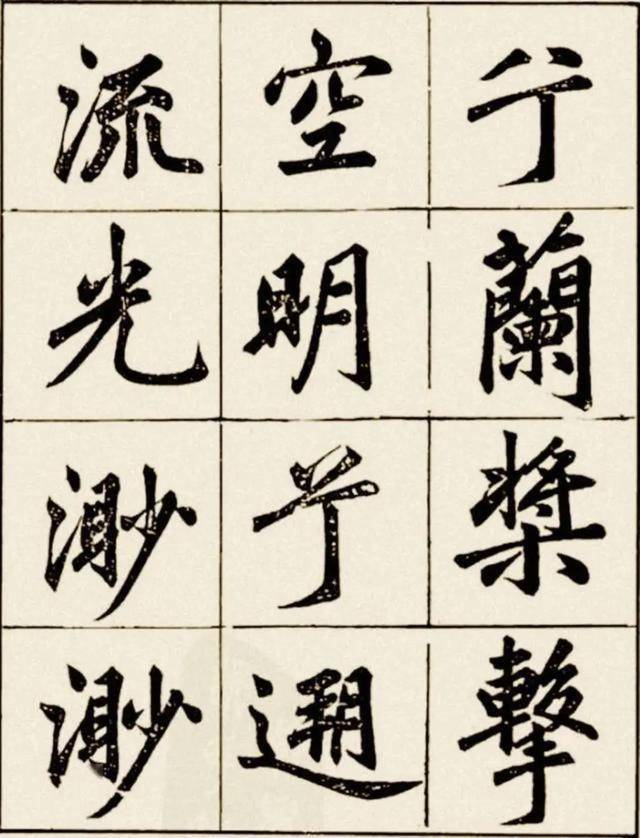 兮蘭槳擊
空明兮遡
流光渺渺